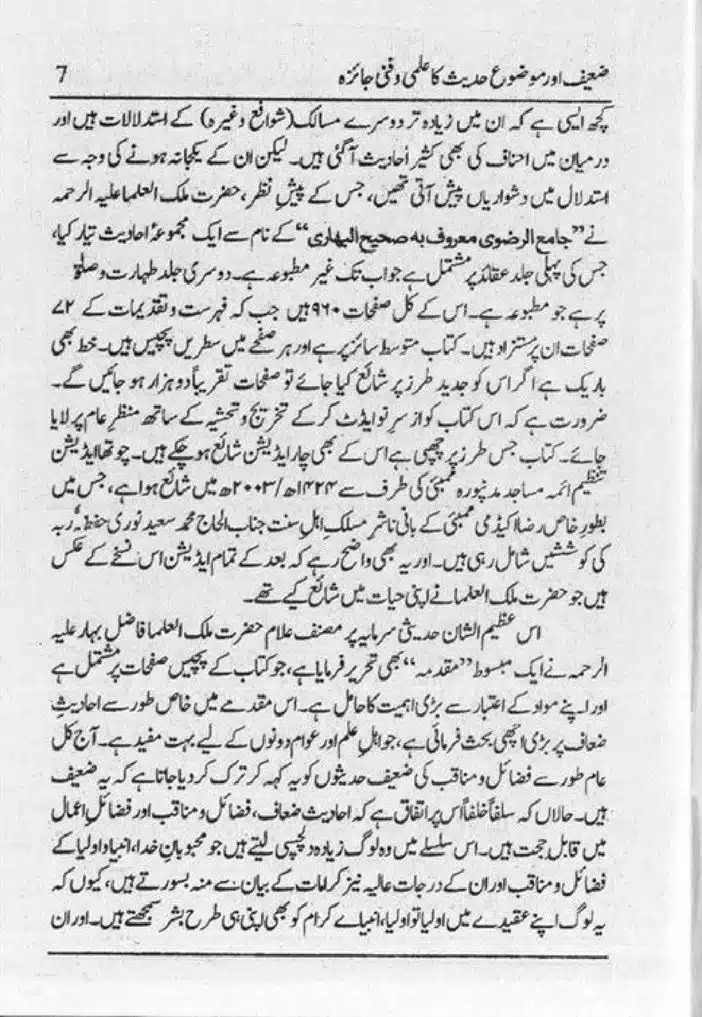 ضعیف اور موضوع حدیث کا علمی و فنی جائزہ 7
کچھ ایسی ہے کہ ان میں زیادہ تر دوسرے مسالک (شوافع وغیرہ) کے استدلالات ہیں اور
درمیان میں احناف کی بھی کثیر احادیث آگئی ہیں۔ لیکن ان کے یکجا نہ ہونے کی وجہ سے
استدلال میں دشواریاں پیش آتی تھیں، جس کے پیشِ نظر، حضرت ملک العلما علیہ الرحمہ
نے ”جامع الرضوی معروف بہ صحیح البہاری“ کے نام سے ایک مجموعۂ احادیث تیار کیا،
جس کی پہلی جلد عقائد پر مشتمل ہے جو اب تک غیر مطبوعہ ہے۔ دوسری جلد طہارت و صلوٰۃ
پر ہے جو مطبوعہ ہے۔ اس کے کل صفحات ۹۶۰ ہیں جب کہ فہرست و تقدیمات کے ۷۲
صفحات ان پر مستزاد ہیں۔ کتاب متوسط سائز پر ہے اور ہر صفحے میں سطریں پچیس ہیں۔ خط بھی
باریک ہے اگر اس کو جدید طرز پر شائع کیا جائے تو صفحات تقریباً دو ہزار ہو جائیں گے۔
ضرورت ہے کہ اس کتاب کو از سرِ نو ایڈٹ کر کے تخریج و تحشیہ کے ساتھ منظرِ عام پر لایا
جائے۔ کتاب جس طرز پر چھپی ہے اس کے بھی چار ایڈیشن شائع ہو چکے ہیں۔ چوتھا ایڈیشن
تنظیم ائمہ مساجد مدنپورہ ممبئی کی طرف سے ۱۴۲۴ھ/۲۰۰۳ھ میں شائع ہوا ہے، جس میں
بطورِ خاص رضا اکیڈمی ممبئی کے بانی ناشرِ مسلکِ اہلِ سنت جناب الحاج محمد سعید نوری حفظہٗ ربہ
کی کوششیں شامل رہی ہیں۔ اور یہ بھی واضح رہے کہ بعد کے تمام ایڈیشن اس نسخے کے عکس
ہیں جو حضرت ملک العلما نے اپنی حیات میں شائع کیے تھے۔
اس عظیم الشان حدیثی سرمایہ پر مصنف علام حضرت ملک العلما فاضل بہار علیہ
الرحمہ نے ایک مبسوط ”مقدمہ“ بھی تحریر فرمایا ہے، جو کتاب کے پچیس صفحات پر مشتمل ہے
اور اپنے مواد کے اعتبار سے بڑی اہمیت کا حامل ہے۔ اس مقدمے میں خاص طور سے احادیثِ
ضعاف پر بڑی اچھی بحث فرمائی ہے، جو اہلِ علم اور عوام دونوں کے لیے بہت مفید ہے۔ آج کل
عام طور سے فضائل و مناقب کی ضعیف حدیثوں کو یہ کہہ کر ترک کر دیا جاتا ہے کہ یہ ضعیف
ہیں۔ حالاں کہ سلفاً خلفاً اس پر اتفاق ہے کہ احادیث ضعاف، فضائل و مناقب اور فضائلِ اعمال
میں قابلِ حجت ہیں۔ اس سلسلے میں وہ لوگ زیادہ دلچسپی لیتے ہیں جو محبوبانِ خدا، انبیا و اولیا کے
فضائل و مناقب اور ان کے درجات عالیہ نیز کرامات کے بیان سے منہ بسورتے ہیں، کیوں کہ
یہ لوگ اپنے عقیدے میں اولیا تو اولیا، انبیاے کرام کو بھی اپنی ہی طرح بشر سمجھتے ہیں۔ اور ان